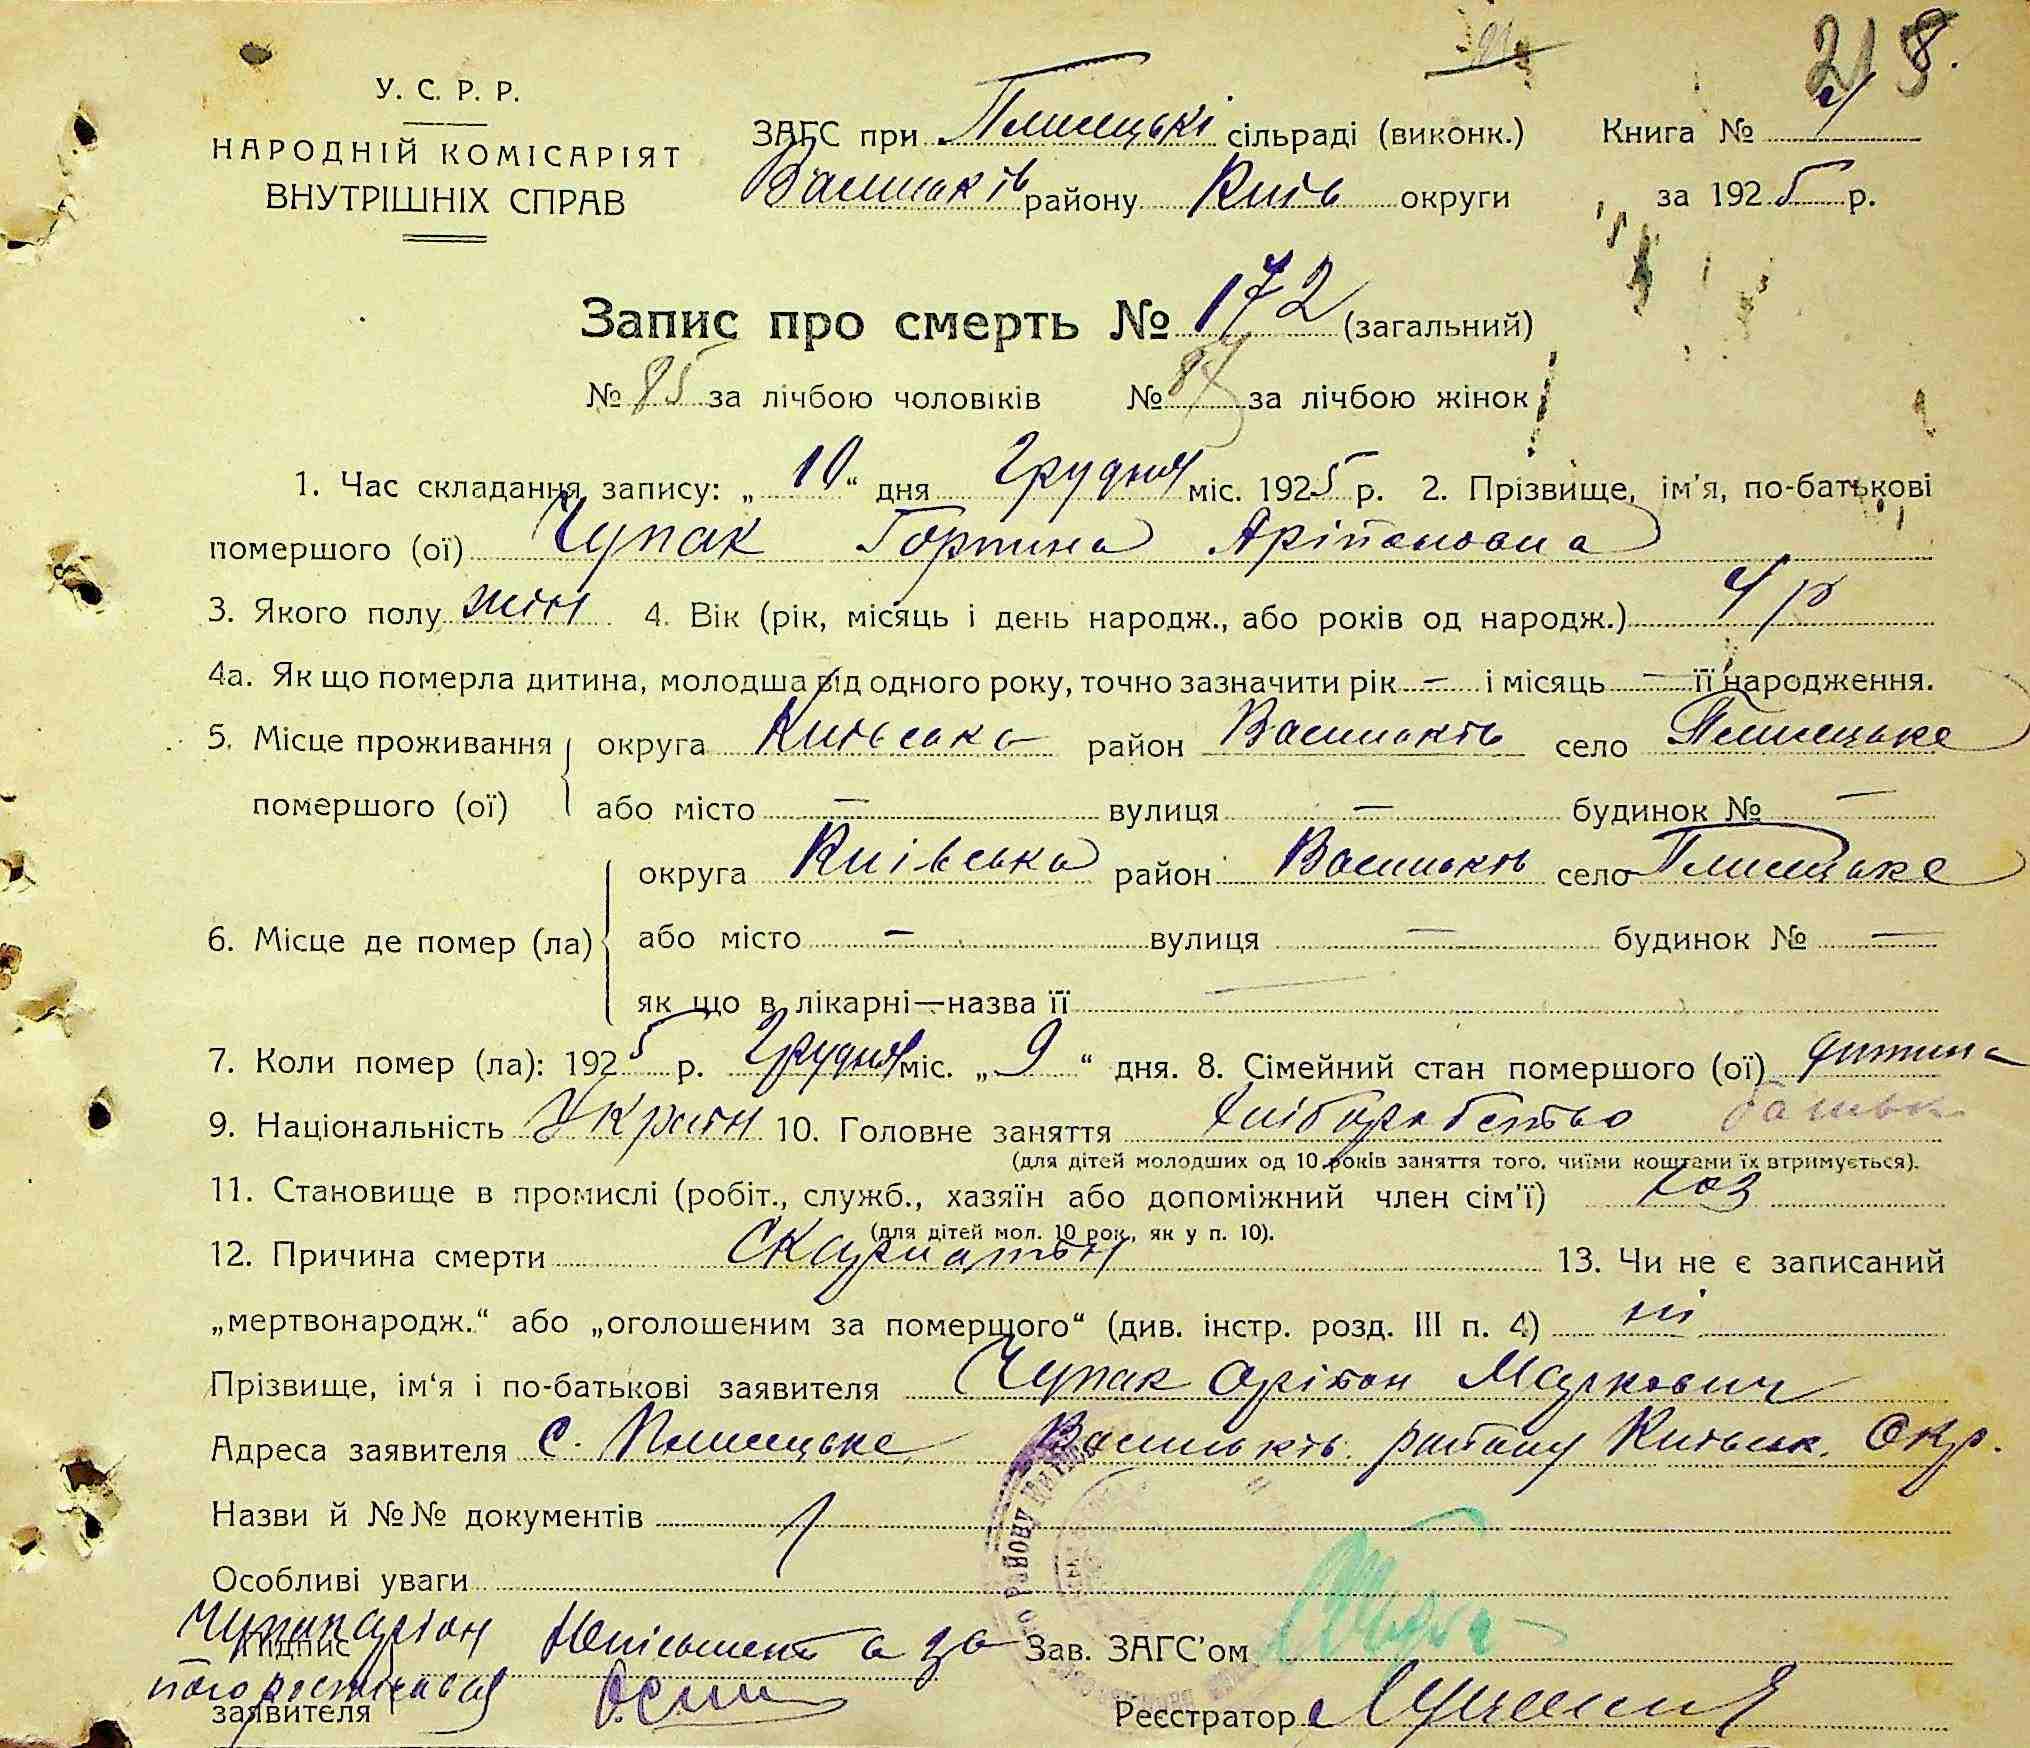 218.
У. С. Р. Р.
НАРОДНІЙ КОМІСАРІЯТ
ВНУТРІШНІХ СПРАВ
ЗАГС при Плисецькі сільраді (виконк.) Книга №
Васильків району Київ округи за 1925 р.
Запис про смерть № 172 (загальний)
№ 85 за лічбою чоловіків № 87 за лічбою жінок
1. Час складання запису: „10“ дня Грудня міс. 1925 р. 2. Прізвище, ім'я, по-батькові
помершого (ої) Чупак Горпина Арітоновна
3. Якого полу жін 4. Вік (рік, місяць і день народж., або років од народж.) 4 р
4а. Як що померла дитина, молодша від одного року, точно зазначити рік — і місяць — її народження.
5. Місце проживання округа Київська район Васильків село Плисецьке
помершого (ої) або місто — вулиця — будинок № —
округа Київська район Васильків село Плисецьке
6. Місце де помер (ла) або місто — вулиця — будинок № —
як що в лікарні—назва її —
7. Коли помер (ла): 1925 р. Грудня міс. „9“ дня. 8. Сімейний стан помершого (ої) дитина
9. Національність Україн 10. Головне заняття хліборобство батьк
(для дітей молодших од 10 років заняття того, чиїми коштами їх втримується).
11. Становище в промислі (робіт., служб., хазяїн або допоміжний член сім'ї) хоз
(для дітей мол. 10 рок., як у п. 10).
12. Причина смерти Скарлатін 13. Чи не є записаний
„мертвонародж.“ або „оголошеним за померщого“ (див. інстр. розд. III п. 4) ні
Прізвище, ім'я і по-батькові заявителя Чупак Арітон Маркович
Адреса заявителя с. Плисецьке Васильків. району Київськ. Окр.
Назви й №№ документів
Особливі уваги
Підпис Неписьмен а за Зав. ЗАГС'ом
заявителя Реєстратор